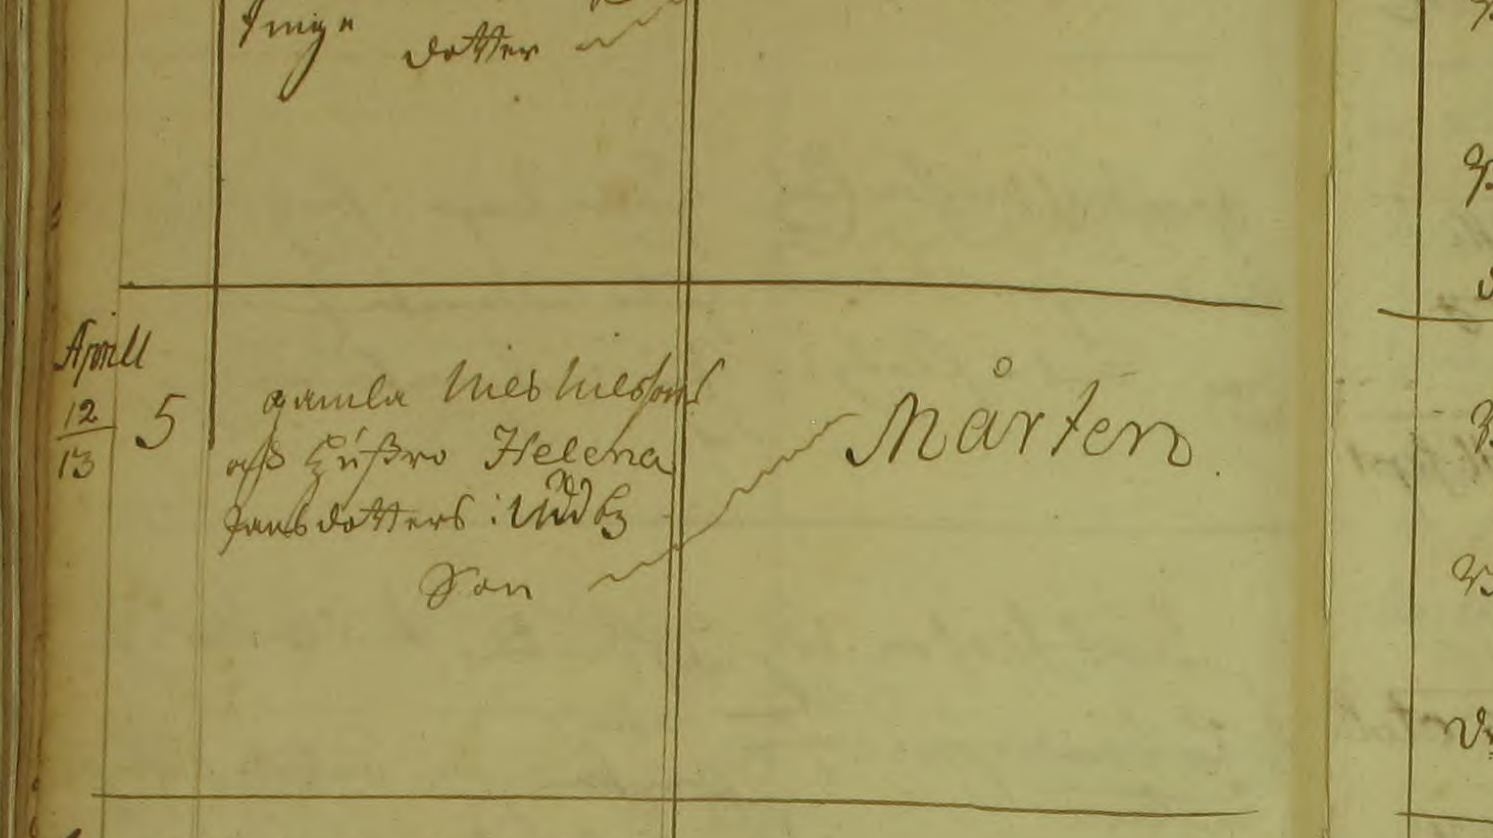 Dotter
Aprill
12
13
5
gamla Niels Nielssons
och Hústro Helena
Jansdotters i Widby
Son
Mårten.